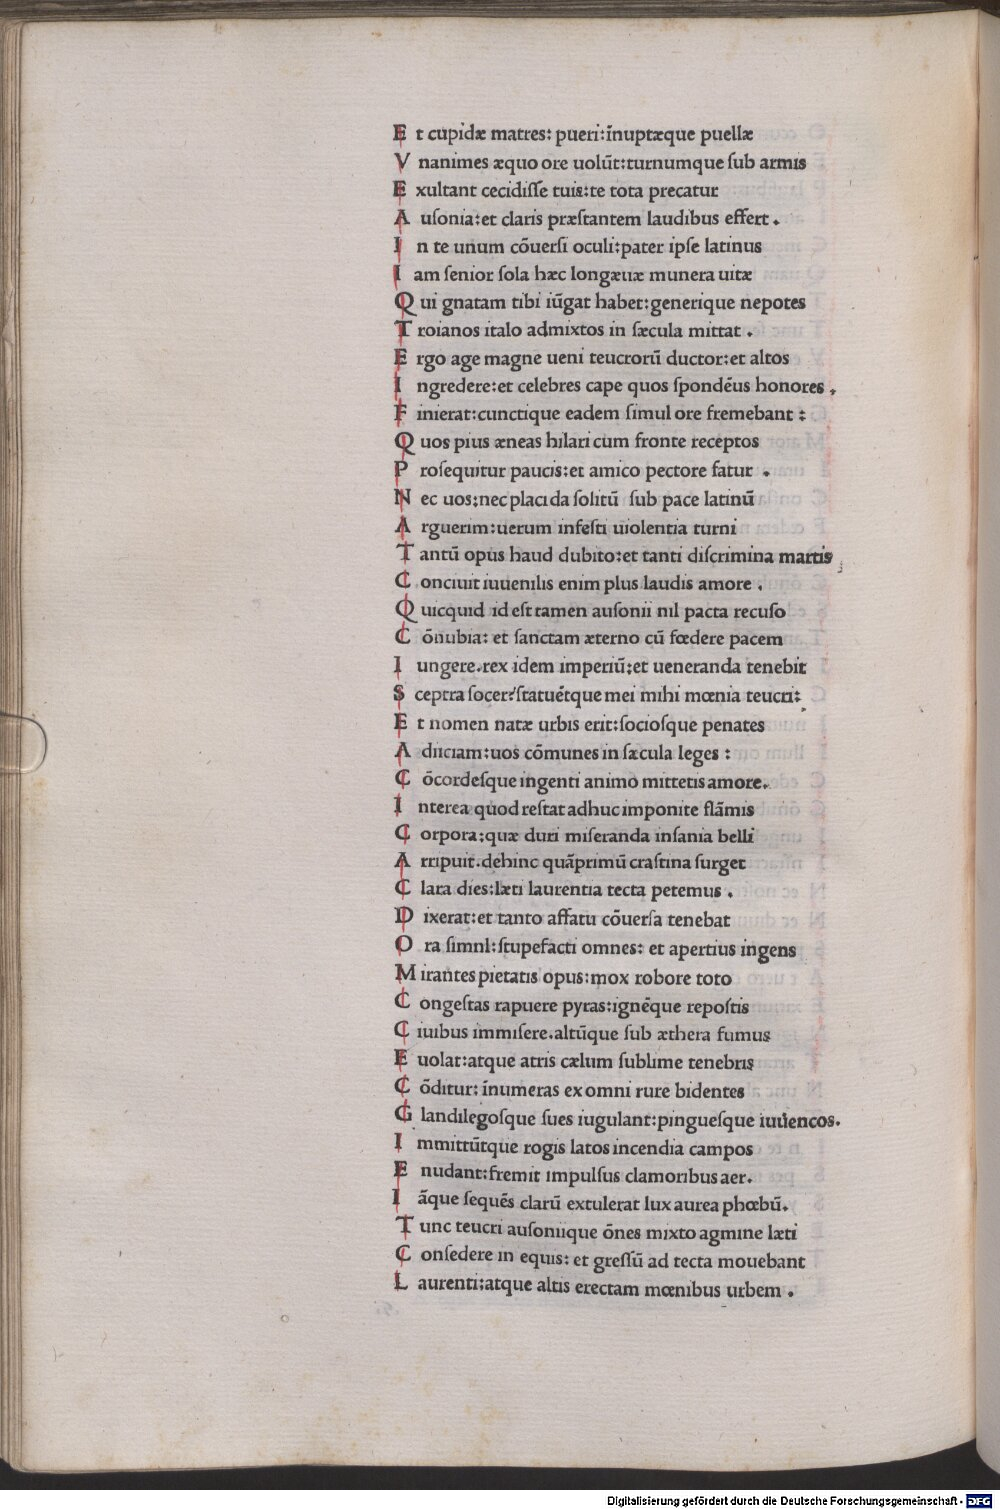 E t cupidæ matres: pueri:īnuptæque puellæ
V nanimes æquo ore uolūt:turnumque ſub armis
E xultant cecidiſſe tuis:te tota precatur
A uſonia:et claris præſtantem laudibus effert.
I n te unum cōuerſi oculi:pater ipſe latinus
I am ſenior ſola hæc longæuæ munera uitæ
Q ui gnatam tibi iūgat habet:generique nepotes
T roianos italo admixtos in ſæcula mittat.
E rgo age magne ueni teucrorū ductor:et altos
I ngredere:et celebres cape quos ſpondēus honores.
F inierat:cunctique eadem ſimul ore fremebant:
Q uos pius æneas hilari cum fronte receptos
P roſequitur paucis:et amico pectore fatur.
N ec uos:nec placida ſolitū ſub pace latinū
A rguerim:uerum infeſti uiolentia turni
T antū opus haud dubito:et tanti diſcrimina martis
C onciuit iuuenilis enim plus laudis amore.
Q uicquid id eſt tamen auſonii nil pacta recuſo
C ōnubia: et ſanctam æterno cū fœdere pacem
I ungere.rex idem imperiū:et ueneranda tenebit
S ceptra ſocer:ſtatuētque mei mihi mœnia teucri:
E t nomen natæ urbis erit:ſocioſque penates
A diiciam:uos cōmunes in ſæcula leges:
C ōcordeſque ingenti animo mittetis amore.
I nterea quod reſtat adhuc imponite flāmis
C orpora:quæ duri miſeranda inſania belli
A rripuit.dehinc quāprimū craſtina ſurget
C lara dies:læti laurentia tecta petemus.
D ixerat:et tanto affatu cōuerſa tenebat
O ra ſimnl:ſtupefacti omnes: et apertius ingens
M irantes pietatis opus:mox robore toto
C ongeſtas rapuere pyras:ignēque repoſtis
C iuibus immiſere.altūque ſub æthera fumus
E uolat:atque atris cælum ſublime tenebris
C ōditur: īnumeras ex omni rure bidentes
G landilegoſque ſues iugulant:pingueſque iuuencos.
I mmittūtque rogis latos incendia campos
E nudant:fremit impulſus clamoribus aer.
I āque ſequēs clarū extulerat lux aurea phœbū.
T unc teucri auſoniique ōnes mixto agmine læti
C onſedere in equis: et greſſū ad tecta mouebant
L aurenti:atque altis erectam mœnibus urbem.
Digitalisierung gefördert durch die Deutsche Forschungsgemeinschaft - DFG